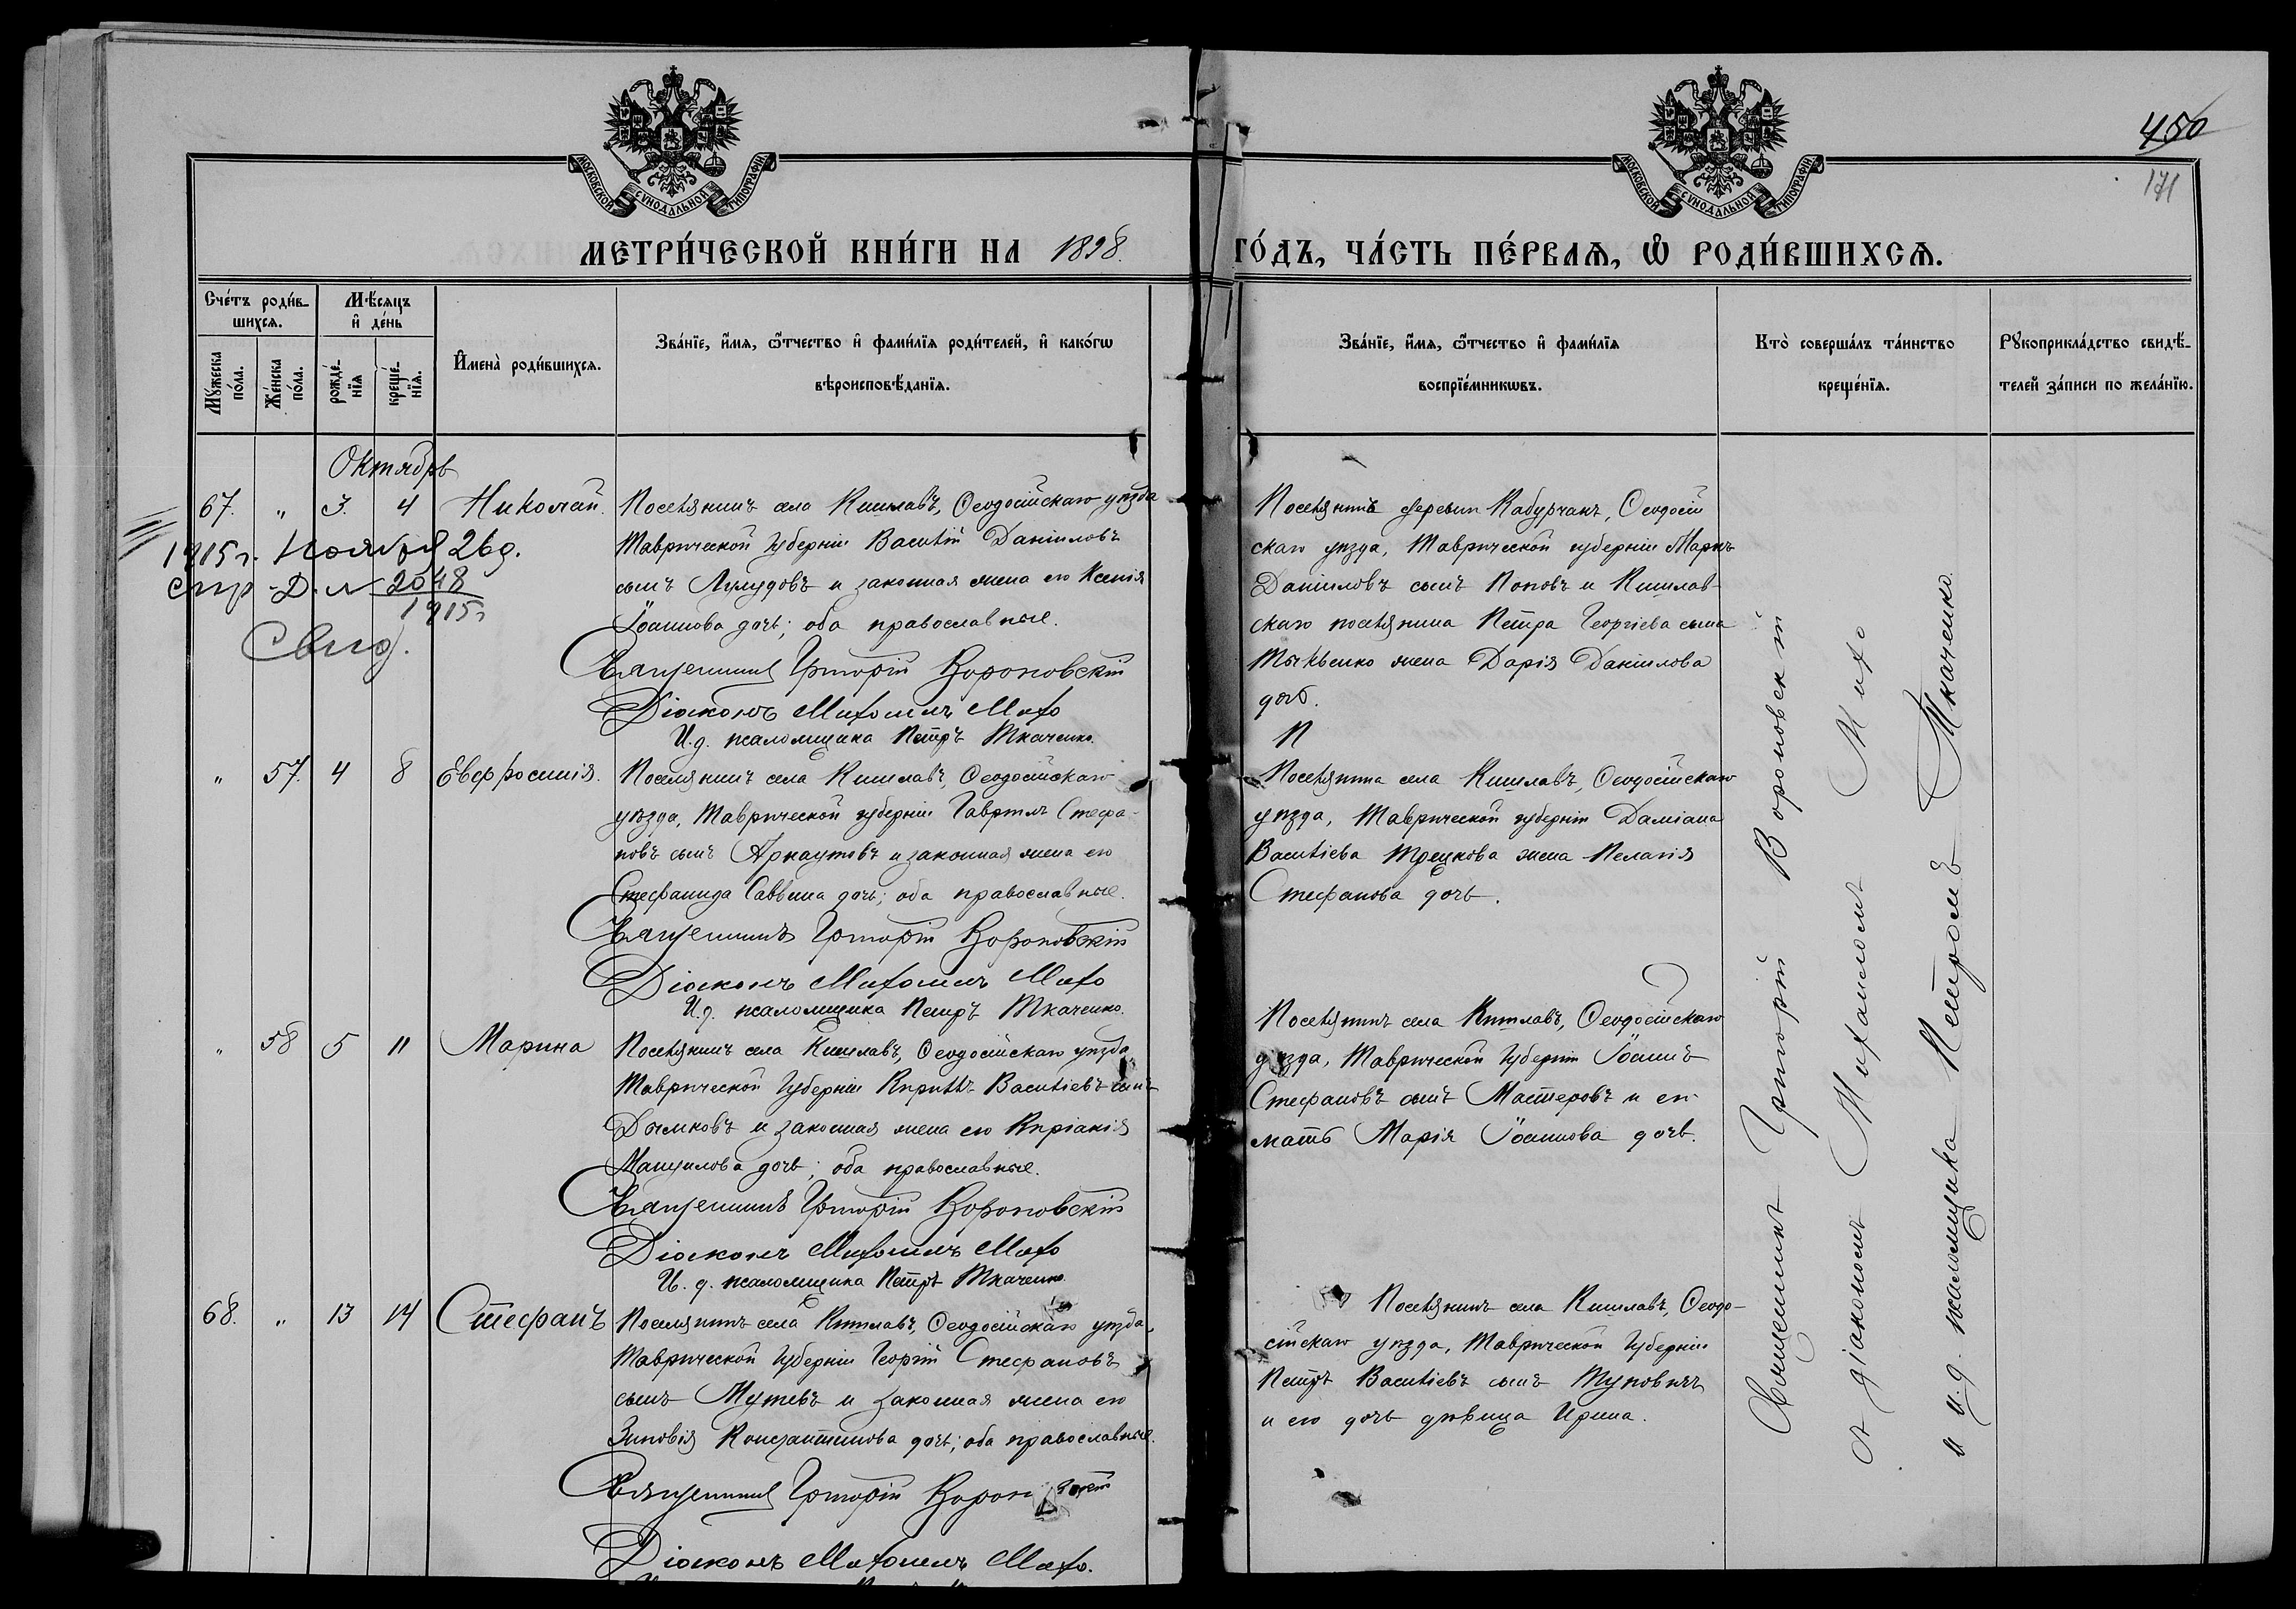 МОСКОВСКОЙ СѴНОДАЛЬНОЙ ТИПОГРАФІИ
МОСКОВСКОЙ СѴНОДАЛЬНОЙ ТИПОГРАФІИ
450
171
МЕТРИ́ЧЕСКОЙ КНИ́ГИ НА 1898.
ГО́ДЪ, ЧА́СТЬ ПЕ́РВАѦ, Ѡ҆ РОДИ́ВШИХСѦ.
Сче́тъ роди́в-
шихсѧ.
Мꙋ́жеска по́ла.
Же́нска по́ла.
Мѣ́сѧцъ
и҆ де́нь
рожде́-нїѧ
креще́-нїѧ.
И҆мена̀ роди́вшихсѧ.
Зва́нїе, и҆́мѧ, ѻ҆́тчество и҆ фами́лїѧ роди́телей, и҆ како́гѡ
вѣроисповѣ́данїѧ.
Зва́нїе, и҆́мѧ, ѻ҆́тчество и҆ фами́лїѧ
воспрїе́мникѡвъ.
Кто̀ соверша́лъ та́инство
креще́нїѧ.
Рꙋкоприкла́дство свидѣ́-
телей за́писи по жела́нїю.
Октябрь
67. " 3. 4 Николай. Поселянинъ села Кишлавъ, Ѳеодосійскаго уѣзда
Таврической губерніи Василій Даніиловъ
сынъ и законная жена его Ксенія
Іоаннова дочь; оба православные.
Священникъ Григорій Вороновскій
Діаконъ Михаилъ Махо
И. д. псаломщика Петръ Ткаченко.
1915 г. Ноября 26 д.
спр. Д. № 2048
1915 г
Свид.
Поселянинъ деревни Кабурчакъ, Ѳеодосій
скаго уѣзда, Таврической губерніи Маркъ
Даніиловъ сынъ Поповъ и Кишлав-
скаго поселянина Петра Георгіева сына
жена Дарія Даніилова
дочь.
П
" 57. 4 8 Евфросинія. Поселянинъ села Кишлавъ, Ѳеодосійскаго
уѣзда, Таврической губерніи Гавріилъ Стефа-
новъ сынъ Арнаутовъ и законная жена его
Стефанида Саввина дочь; оба православные.
Священникъ Григорій Вороновскій
Діаконъ Михаилъ Махо
И. д. псаломщика Петръ Ткаченко.
Поселянина села Кишлавъ, Ѳеодосійскаго
уѣзда, Таврической губерніи Даміана
Василіева жена Пелагія
Стефанова дочь.
" 58 5 11 Марина Поселянинъ села Кишлавъ, Ѳеодосійскаго уѣзда
Таврической Губерніи Кириллъ Василіевъ сынъ
Дымковъ и законная жена его Киріакія
дочь; оба православные.
Священникъ Григорій Вороновскій
Діаконъ Михаилъ Махо
И. д. псаломщика Петръ Ткаченко.
Поселянинъ села Кишлавъ, Ѳеодосійскаго
уѣзда, Таврической Губерніи Іоаннъ
Стефановъ сынъ Мастеровъ и его
мать Марія Іоаннова дочь.
68. " 13 14 Стефанъ Поселянинъ села Кишлавъ, Ѳеодосійскаго уѣзда,
Таврической Губерніи Георгій Стефановъ
сынъ и законная жена его
Зиновія Константинова дочь; оба православные.
Священникъ Григорій
Діаконъ Михаилъ Махо.
Поселянинъ села Кишлавъ, Ѳеодо-
сійскаго уѣзда, Таврической Губерніи
Петръ Василіевъ сынъ
и его дочь дѣвица Ирина.
Священникъ Григорій Вороновскій
съ діакономъ Михаиломъ Махо
и и. д. псаломщика Петромъ Ткаченко.